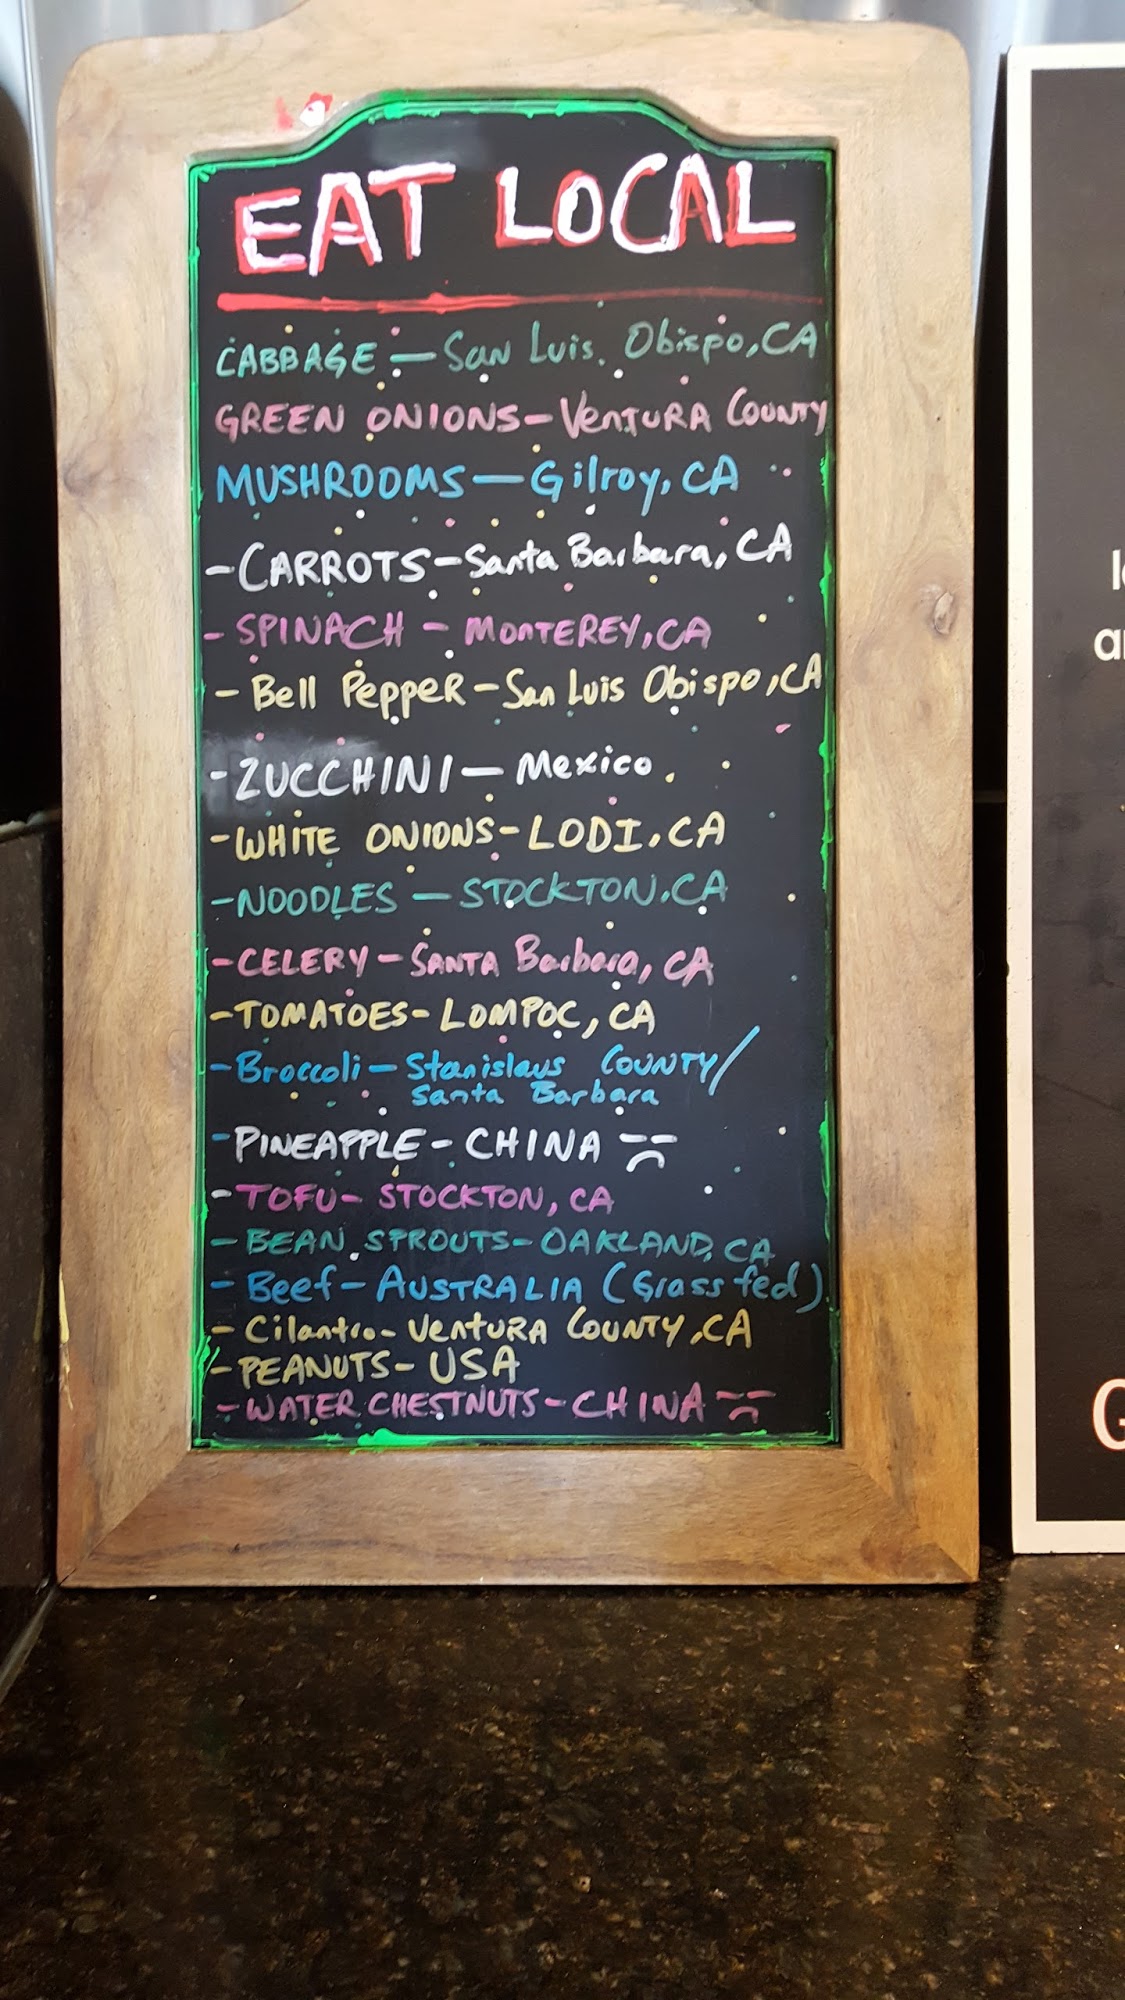 EAT LOCAL
CABBAGE — San Luis Obispo, CA
GREEN ONIONS - Ventura County
MUSHROOMS — Gilroy, CA
- CARROTS - Santa Barbara, CA
- SPINACH - MONTEREY, CA
- Bell Pepper - San Luis Obispo, CA
- ZUCCHINI — Mexico
- WHITE ONIONS - LODI, CA
- NOODLES — STOCKTON, CA
- CELERY - Santa Barbara, CA
- TOMATOES - LOMPOC, CA
- Broccoli - Stanislaus County/
Santa Barbara
- PINEAPPLE - CHINA
- TOFU - STOCKTON, CA
- BEAN SPROUTS - OAKLAND, CA
- Beef - AUSTRALIA (Grass fed)
- Cilantro - Ventura County, CA
- PEANUTS - USA
- WATER CHESTNUTS - CHINA